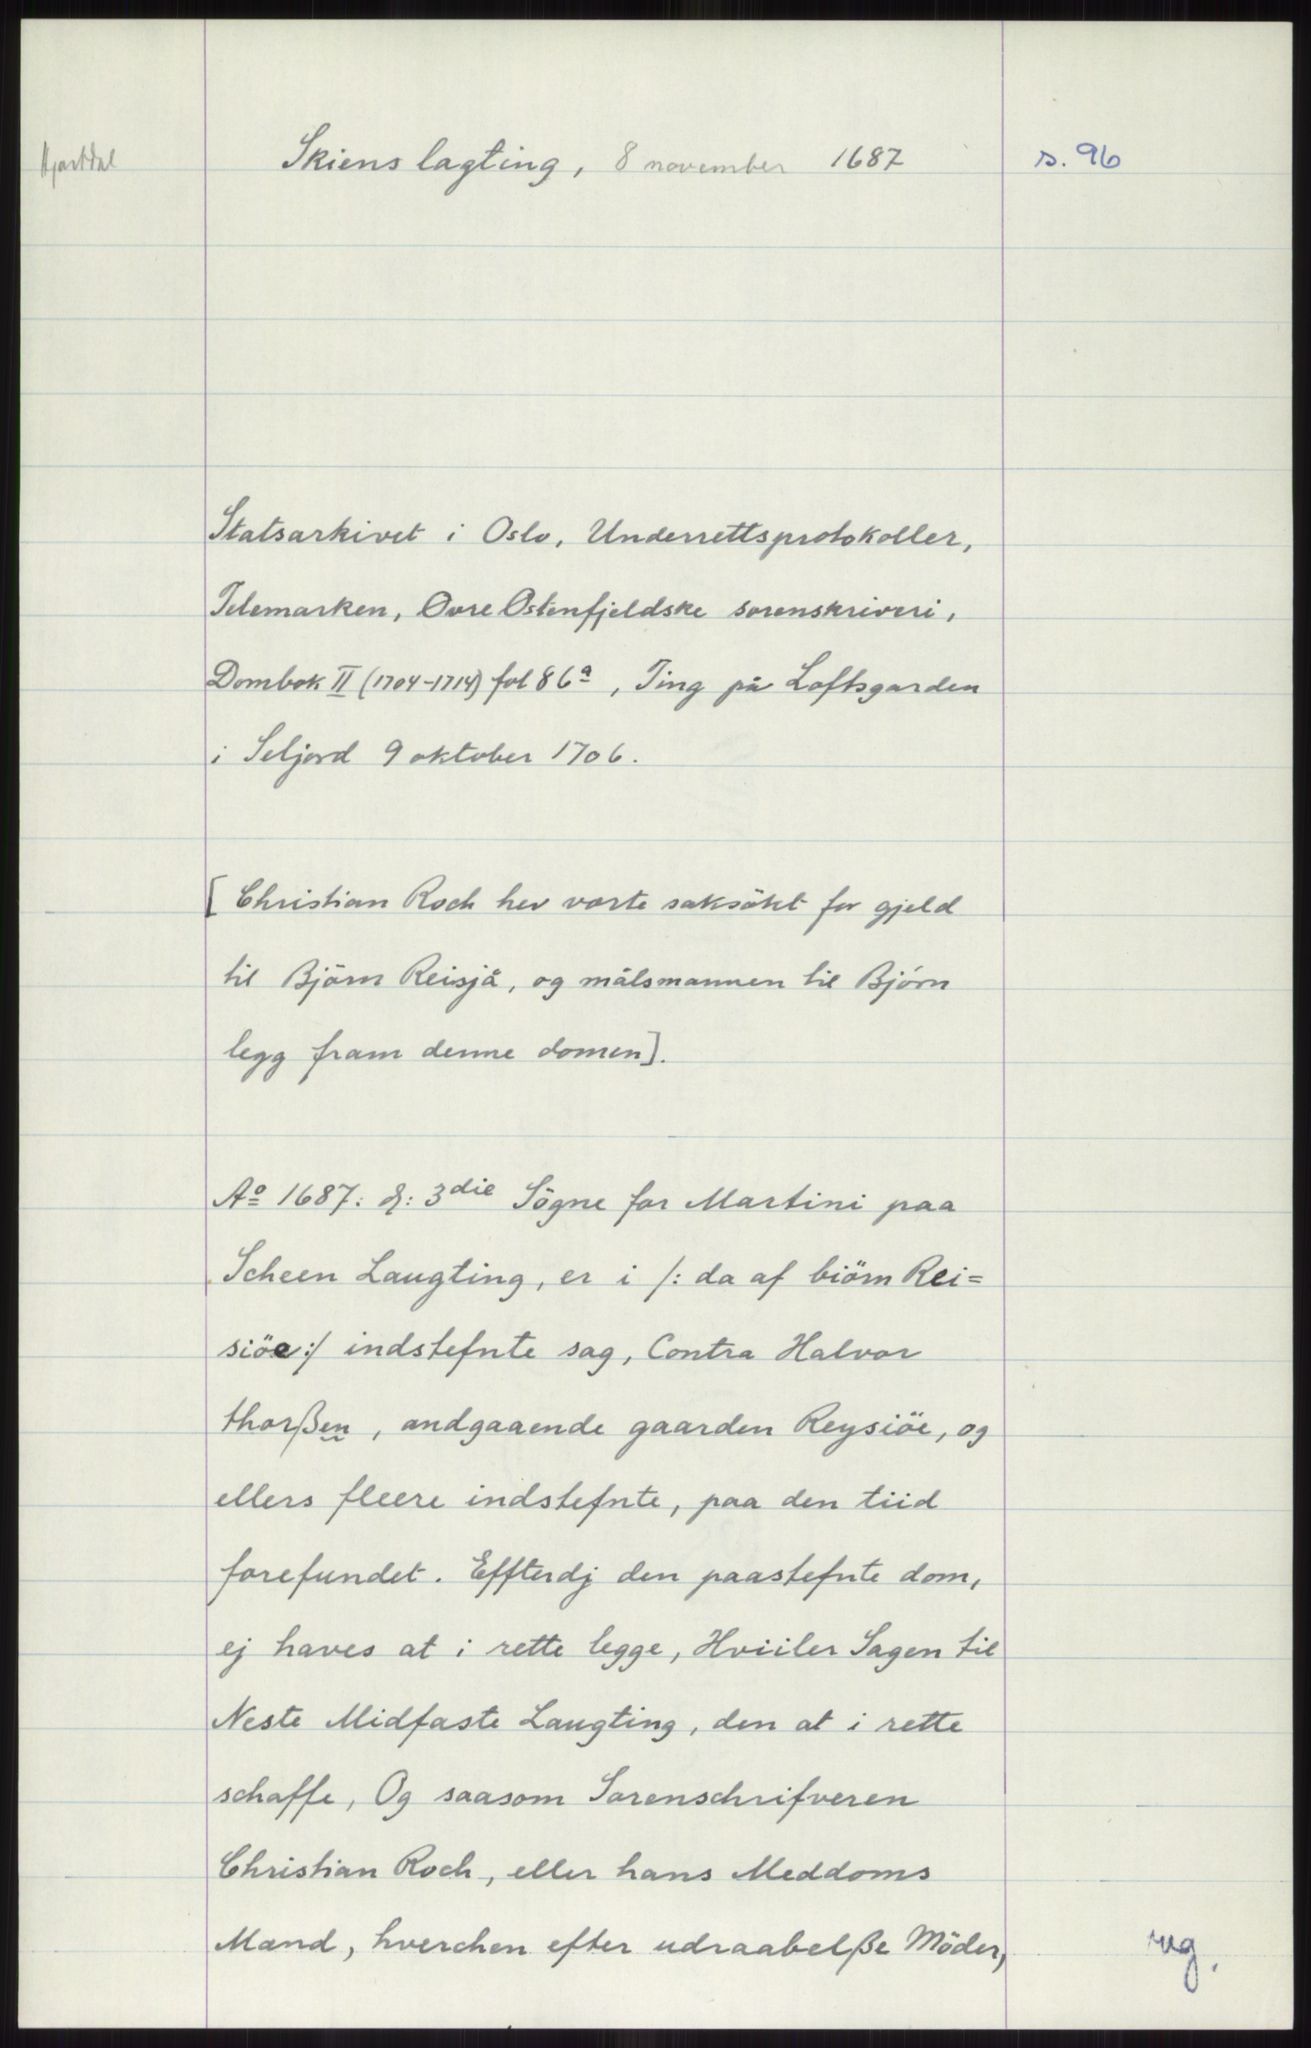 Hjartdal
Skiens lagting, 8 november 1687
s. 96
Statsarkivet i Oslo, Underrettsprotokoller,
Telemarken, Øvre Østenfjeldske sorenskriveri,
Dombok II (1704-1714) fol 86a, Ting på Loftsgarden
i Seljord 9 oktober 1706.
[Christian Roch hev vorte saksökt for gjeld
til Björn Reisjå, og målsmannen til Björn
legg fram denne domen].
Aº 1687: d: 3die Sögne for Martini paa
Scheen Laugting, er i /: da af biörn Rei=
siöe:/ indstefnte sag, Contra Halvor
thorßen, andgaaende gaarden Reysiöe, og
ellers fleere indstefnte, paa den tiid
forefundet. Effterdj den paastefnte dom,
ej haves at i rette legge, Hviiler Sagen til
Neste Midfaste Laugting, den at i rette
schaffe, Og saasom Sorenschrifveren
Christian Roch, eller hans Meddoms
Mænd, hverchen efter udraabelße Möder,